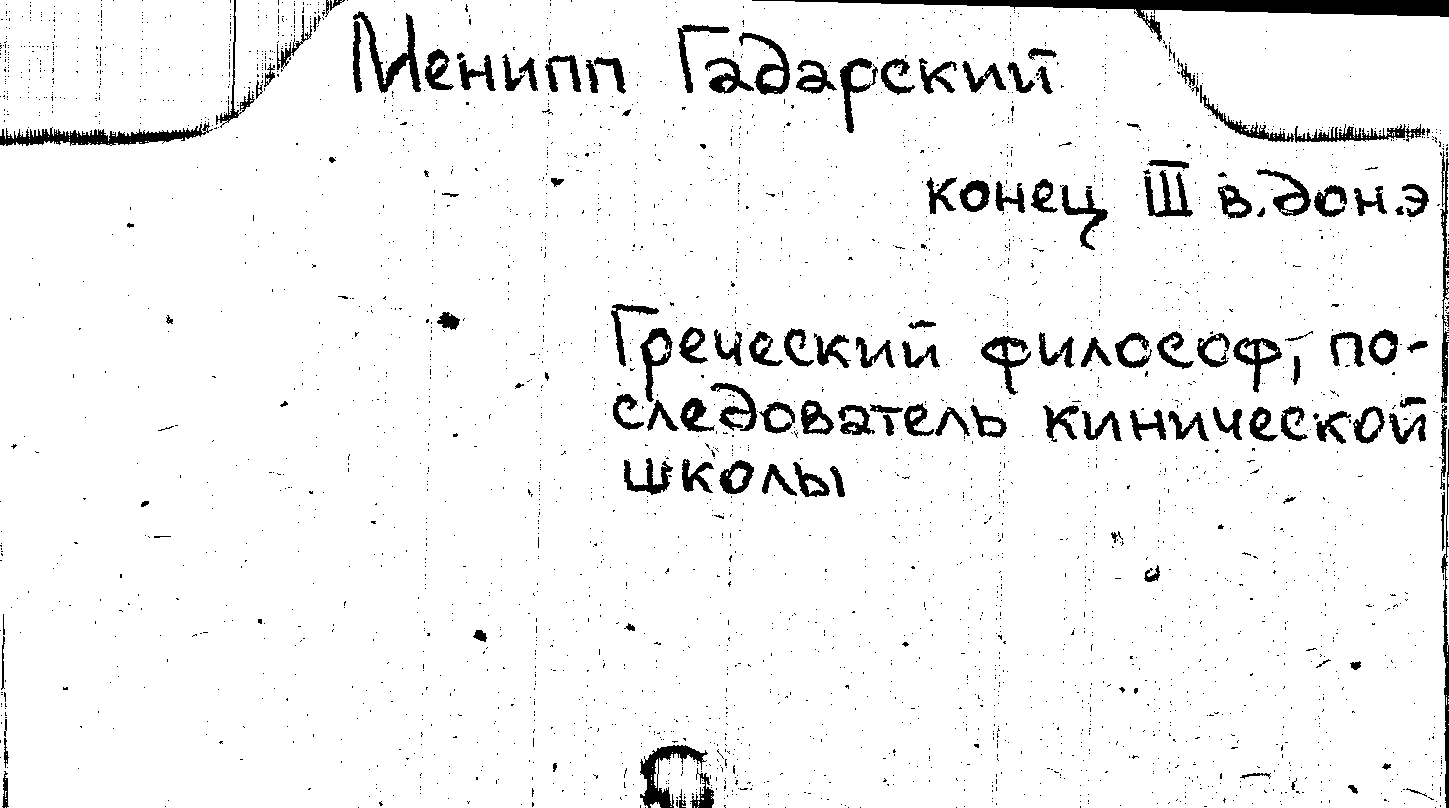 Менипп Гадарский
конец III в. до н.э
Греческий философ, по-
следователь кинической
школы